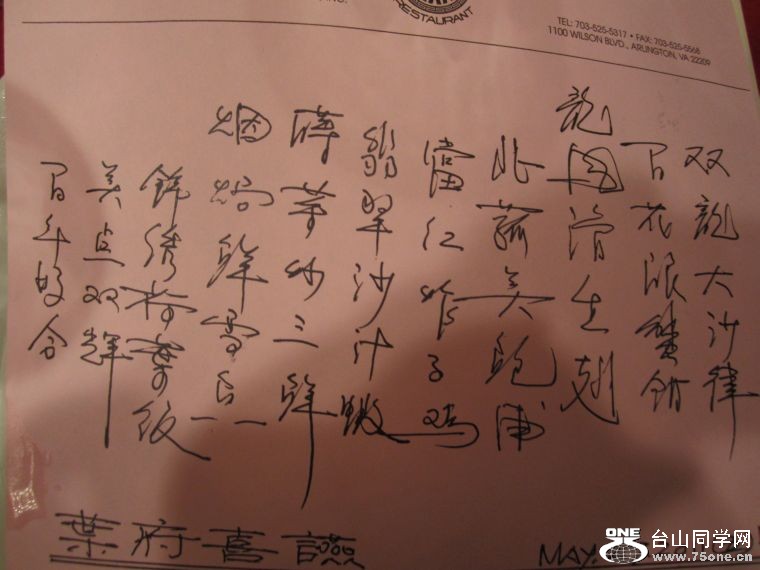 INC.
RESTAURANT
TEL: 703-525-5317 • FAX: 703-525-5568
1100 WILSON BLVD., ARLINGTON, VA 22209
双龍大沙律
百花浪蟹鉗
龍滑生翅
北菰美鲍甫
當红炸子鸡
翡翠沙汁蝦
炒三鮮
烟焗鮮雪
錦绣荷葉饭
美点双辉
百年好合
葉府喜讌
MAY.
ONE 台山同学网
www.75one.cn